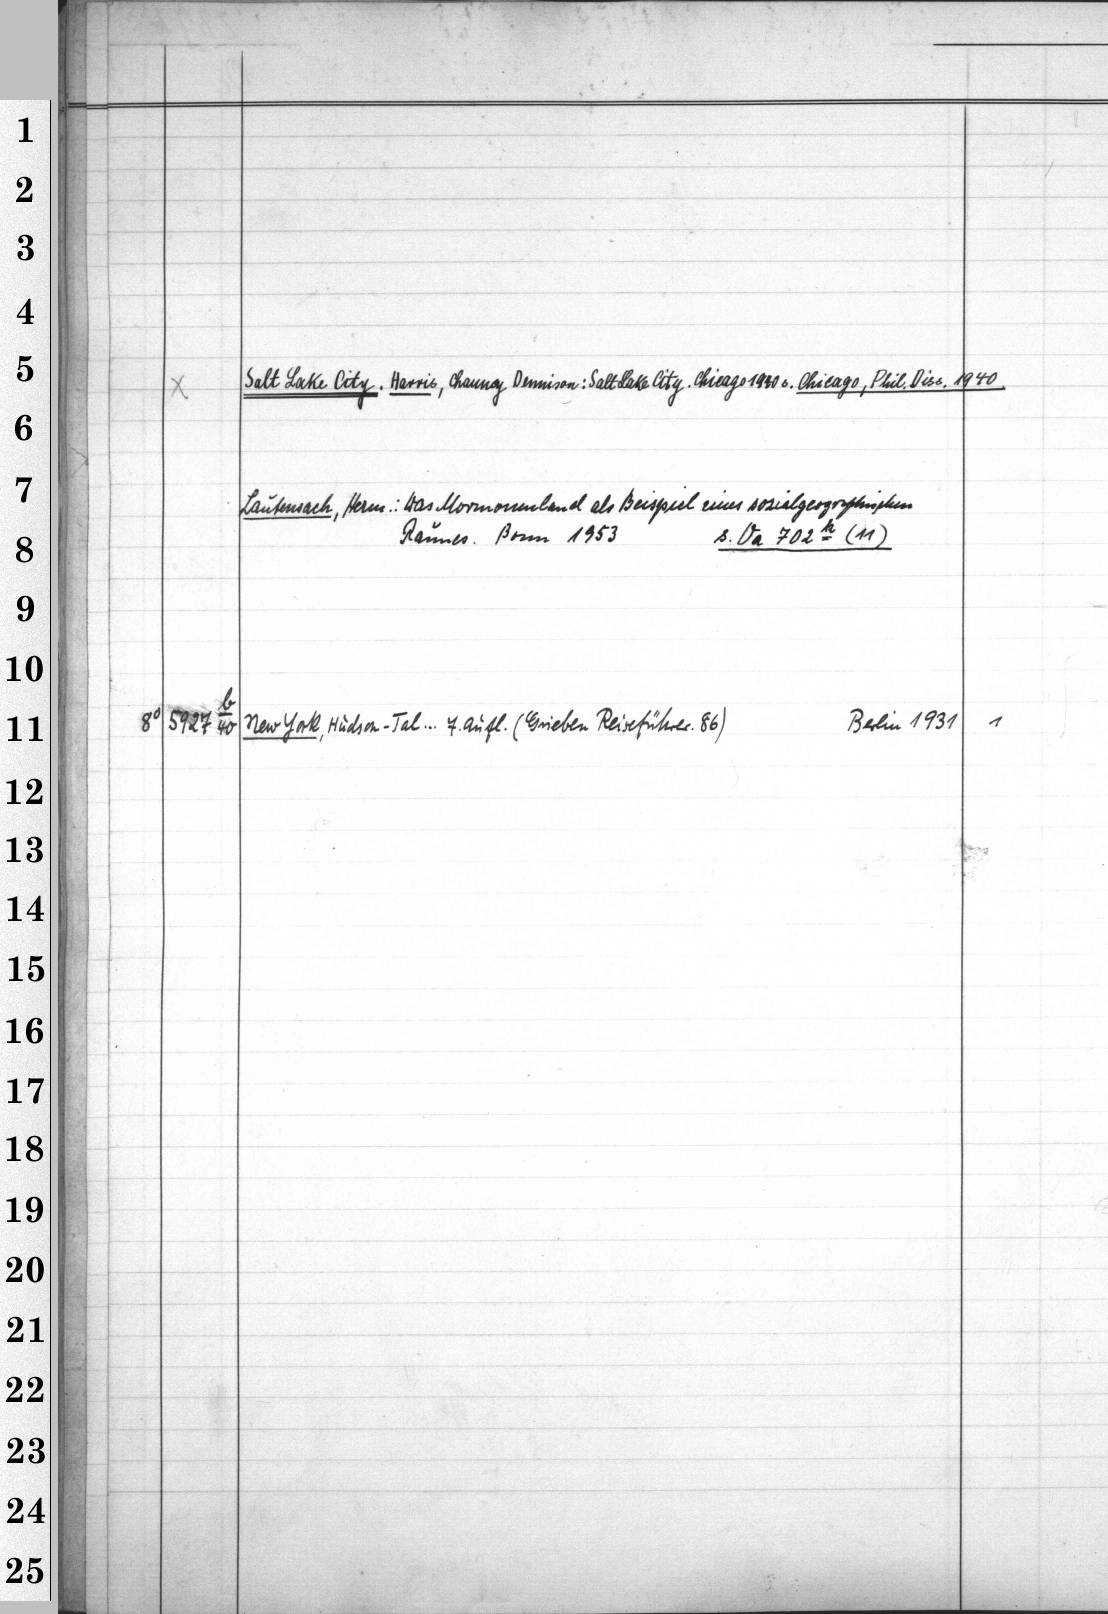 1
2
3
4
5
X Salt Lake City. Harris, Chauncy Dennison: Salt Lake City. Chicago 1940 s. Chicago, Phil. Diss. 1940.
6
7
Lautensach, Herm.: Das Mormonenland als Beispiel eines sozialgeographischen
Raumes. Bonn 1953 s. Va 702 k (11)
8
9
10
11
8° 5927 b/40 New York, Hudson-Tal... 7. Aufl. (Grieben Reiseführer. 86) Berlin 1931 1
12
13
14
15
16
17
18
19
20
21
22
23
24
25